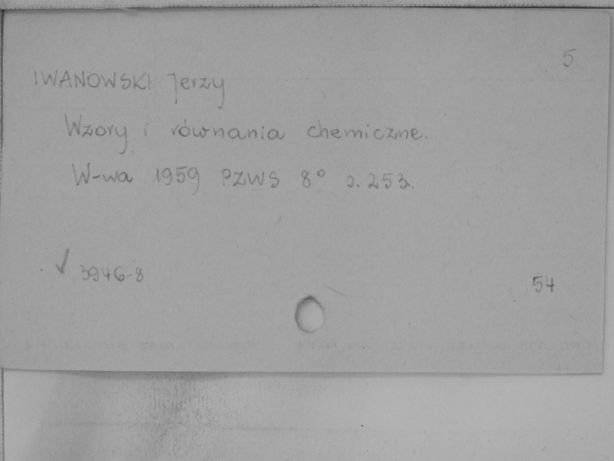 5
IWANOWSKI Jerzy
Wzory i równania chemiczne.
W-wa 1959 PZWS 8° s. 253.
✓ 3946-8
54